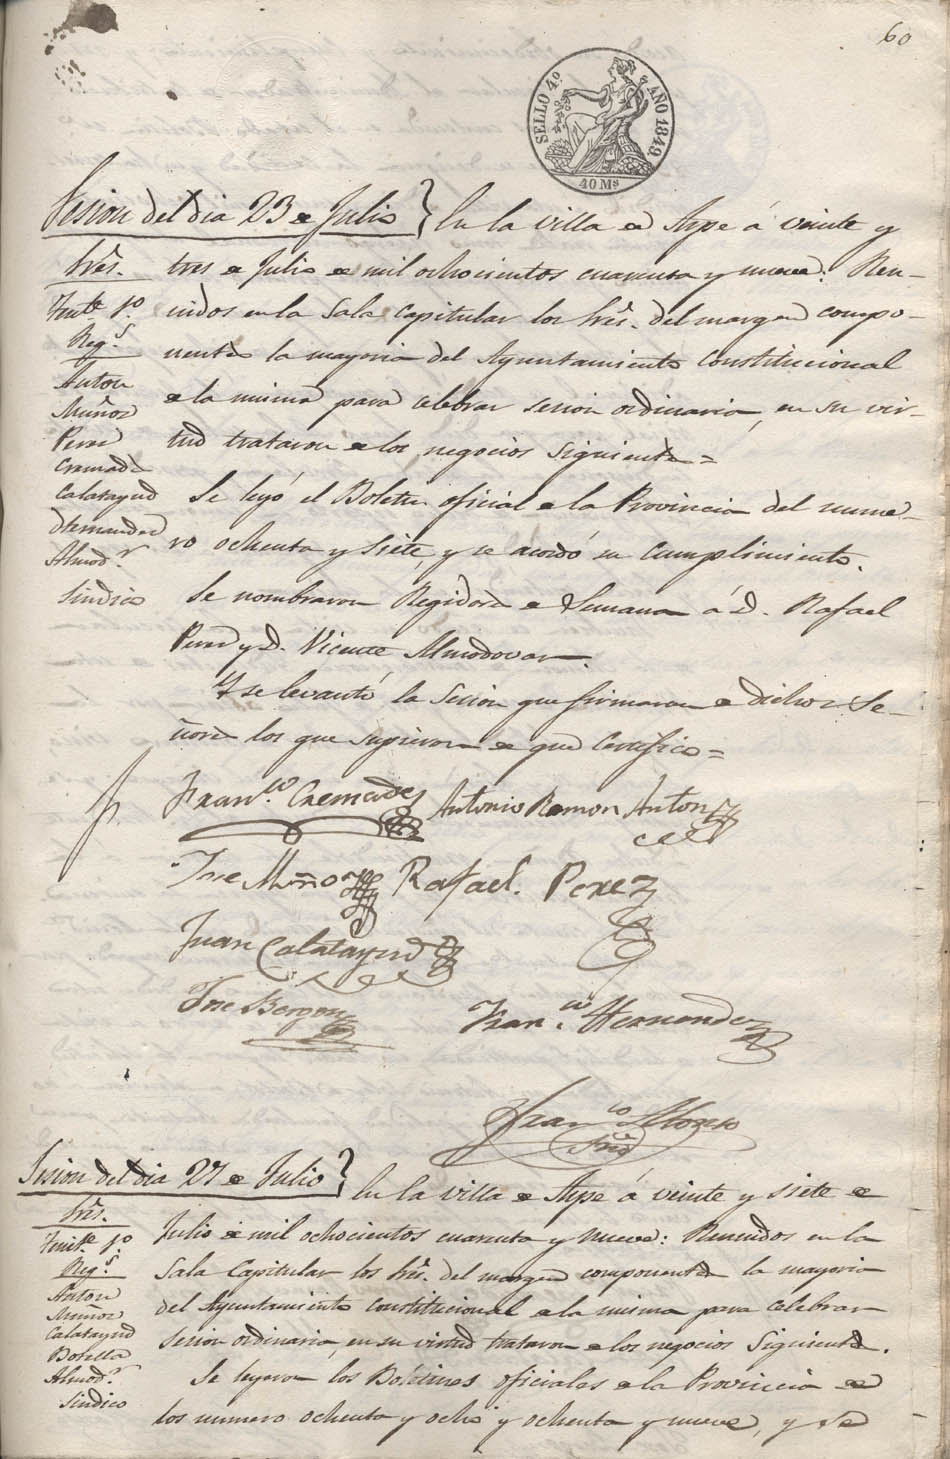 60
SELLO 4º AÑO 1849
40 Ms
Sesion del dia 23 de Julio } En la villa de Aspe á veinte y
tres de Julio de mil ochocientos cuarenta y nueve: Reu-
nidos en la Sala Capitular los Sres. del margen compo-
nentes la mayoria del Ayuntamiento Constitucional
de la misma para celebrar sesion ordinaria, en su vir-
tud trataron de los negocios siguientes=
Se leyó el Boletin oficial de la Provincia del nume-
ro ochenta y siete, y se acordó su cumplimiento.
Se nombraron Regidores de Semana á D. Rafael
Perez y D. Vicente Almodovar.
Y se levantó la Sesion que firmaron de dichos Se-
ñores los que supieron de que Certifico=
Sres.
Tente. 1º
Regs.
Anton
Muñoz
Perez
Cremades
Calatayud
Hernandez
Almodr.
Sindico
Franco. Cremades Antonio Ramon Anton
Jose Muñoz Rafael Perez
Juan Calatayud
Jose Borgoñ
Franco. Hernandez
Franco. Alonso
Srio
Sesion del dia 27 de Julio } En la villa de Aspe á veinte y siete de
Julio de mil ochocientos cuarenta y nueve: Reunidos en la
Sala Capitular los Sres. del margen componentes la mayoria
del Ayuntamiento Constitucional de la misma para celebrar
sesion ordinaria, en su virtud trataron de los negocios Siguientes.
Se leyeron los Boletines oficiales de la Provincia de
los numero ochenta y ocho y ochenta y nueve, y se
Sres.
Tente. 1º
Regs.
Anton
Muñoz
Calatayud
Botella
Almodr.
Sindico